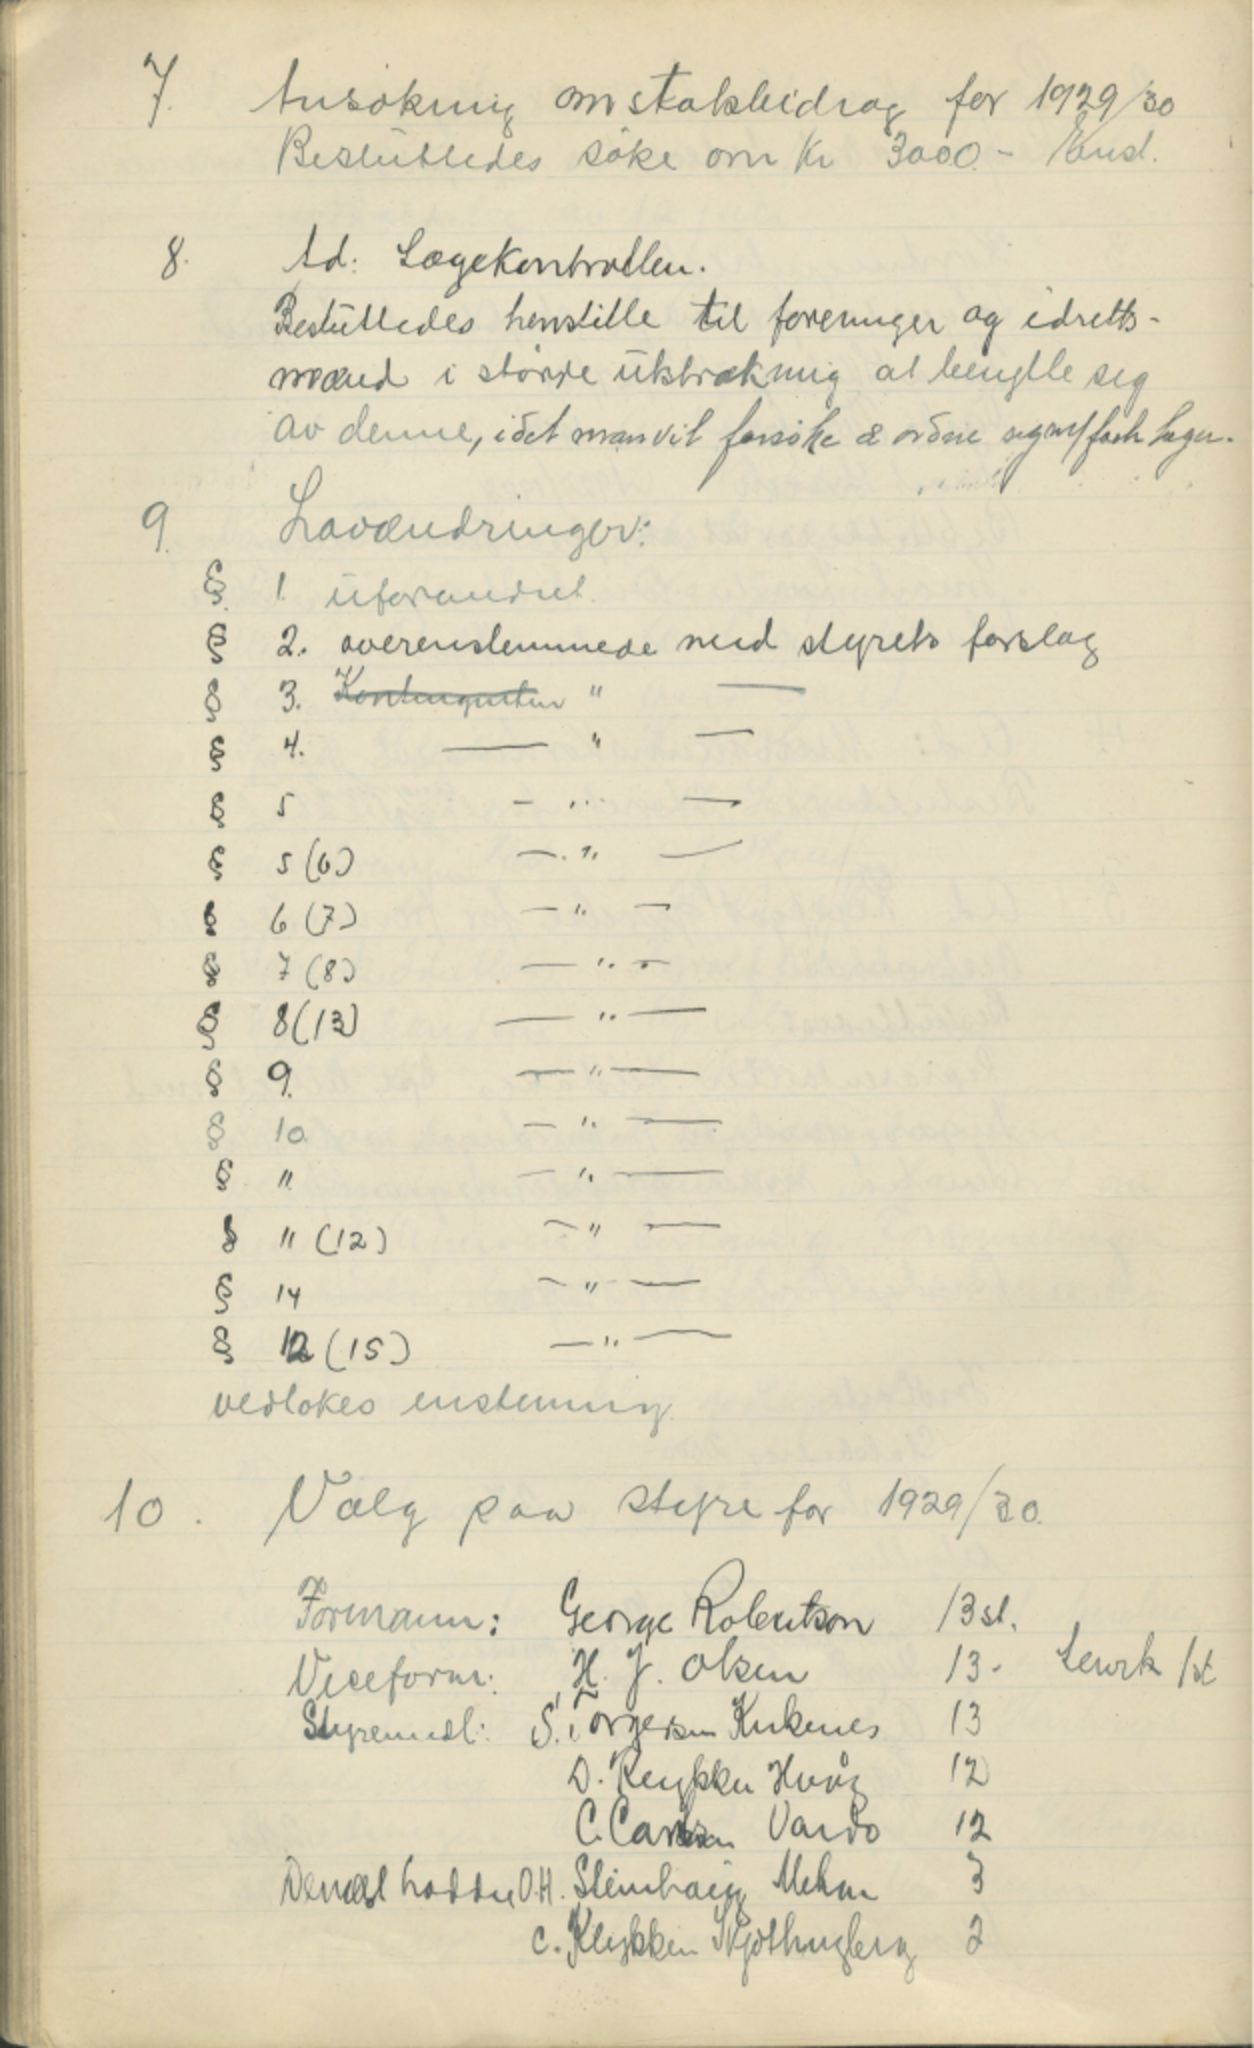 7. Ansökning om statsbidrag for 1929/30
Besluttedes söke om Kr 3000.-
8. Ad: Lægekontrollen.
Besluttedes henstille til foreninger og idretts-
mænd i större utstrækning at benytte seg
av denne, idet man vil forsöke å ordne seg m/ fash læger.
9. Lovændringer:
§ 1. uforandret.
§ 2. overenstemmede med styrets forslag
§ 3. Kontingenten " —
§ 4. — " —
§ 5 — " —
§ 5 (6) — " —
§ 6 (7) — " —
§ 7 (8) — " —
§ 8 (13) — " —
§ 9. — " —
§ 10 — " —
§ 11 — " —
§ 11 (12) — " —
§ 14 — " —
§ 12 (15) — " —
vedtokes enstemmig
10. Valg paa styre for 1929/30.
Formann: George Robertson 13 st.
Viseform: H. J. Olsen 13 - 1 st
Styremedl: S. Torgersen Kirkenes 13
D. Reykken 12
C. Carlsen Vardö 12
Dernæst hadde O.H. Steinhaug Mehan 3
C. Klykken 2